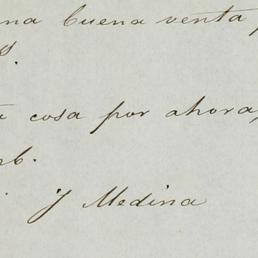 na buena venta
S.
cosa por ahora,
mb.
J Medina